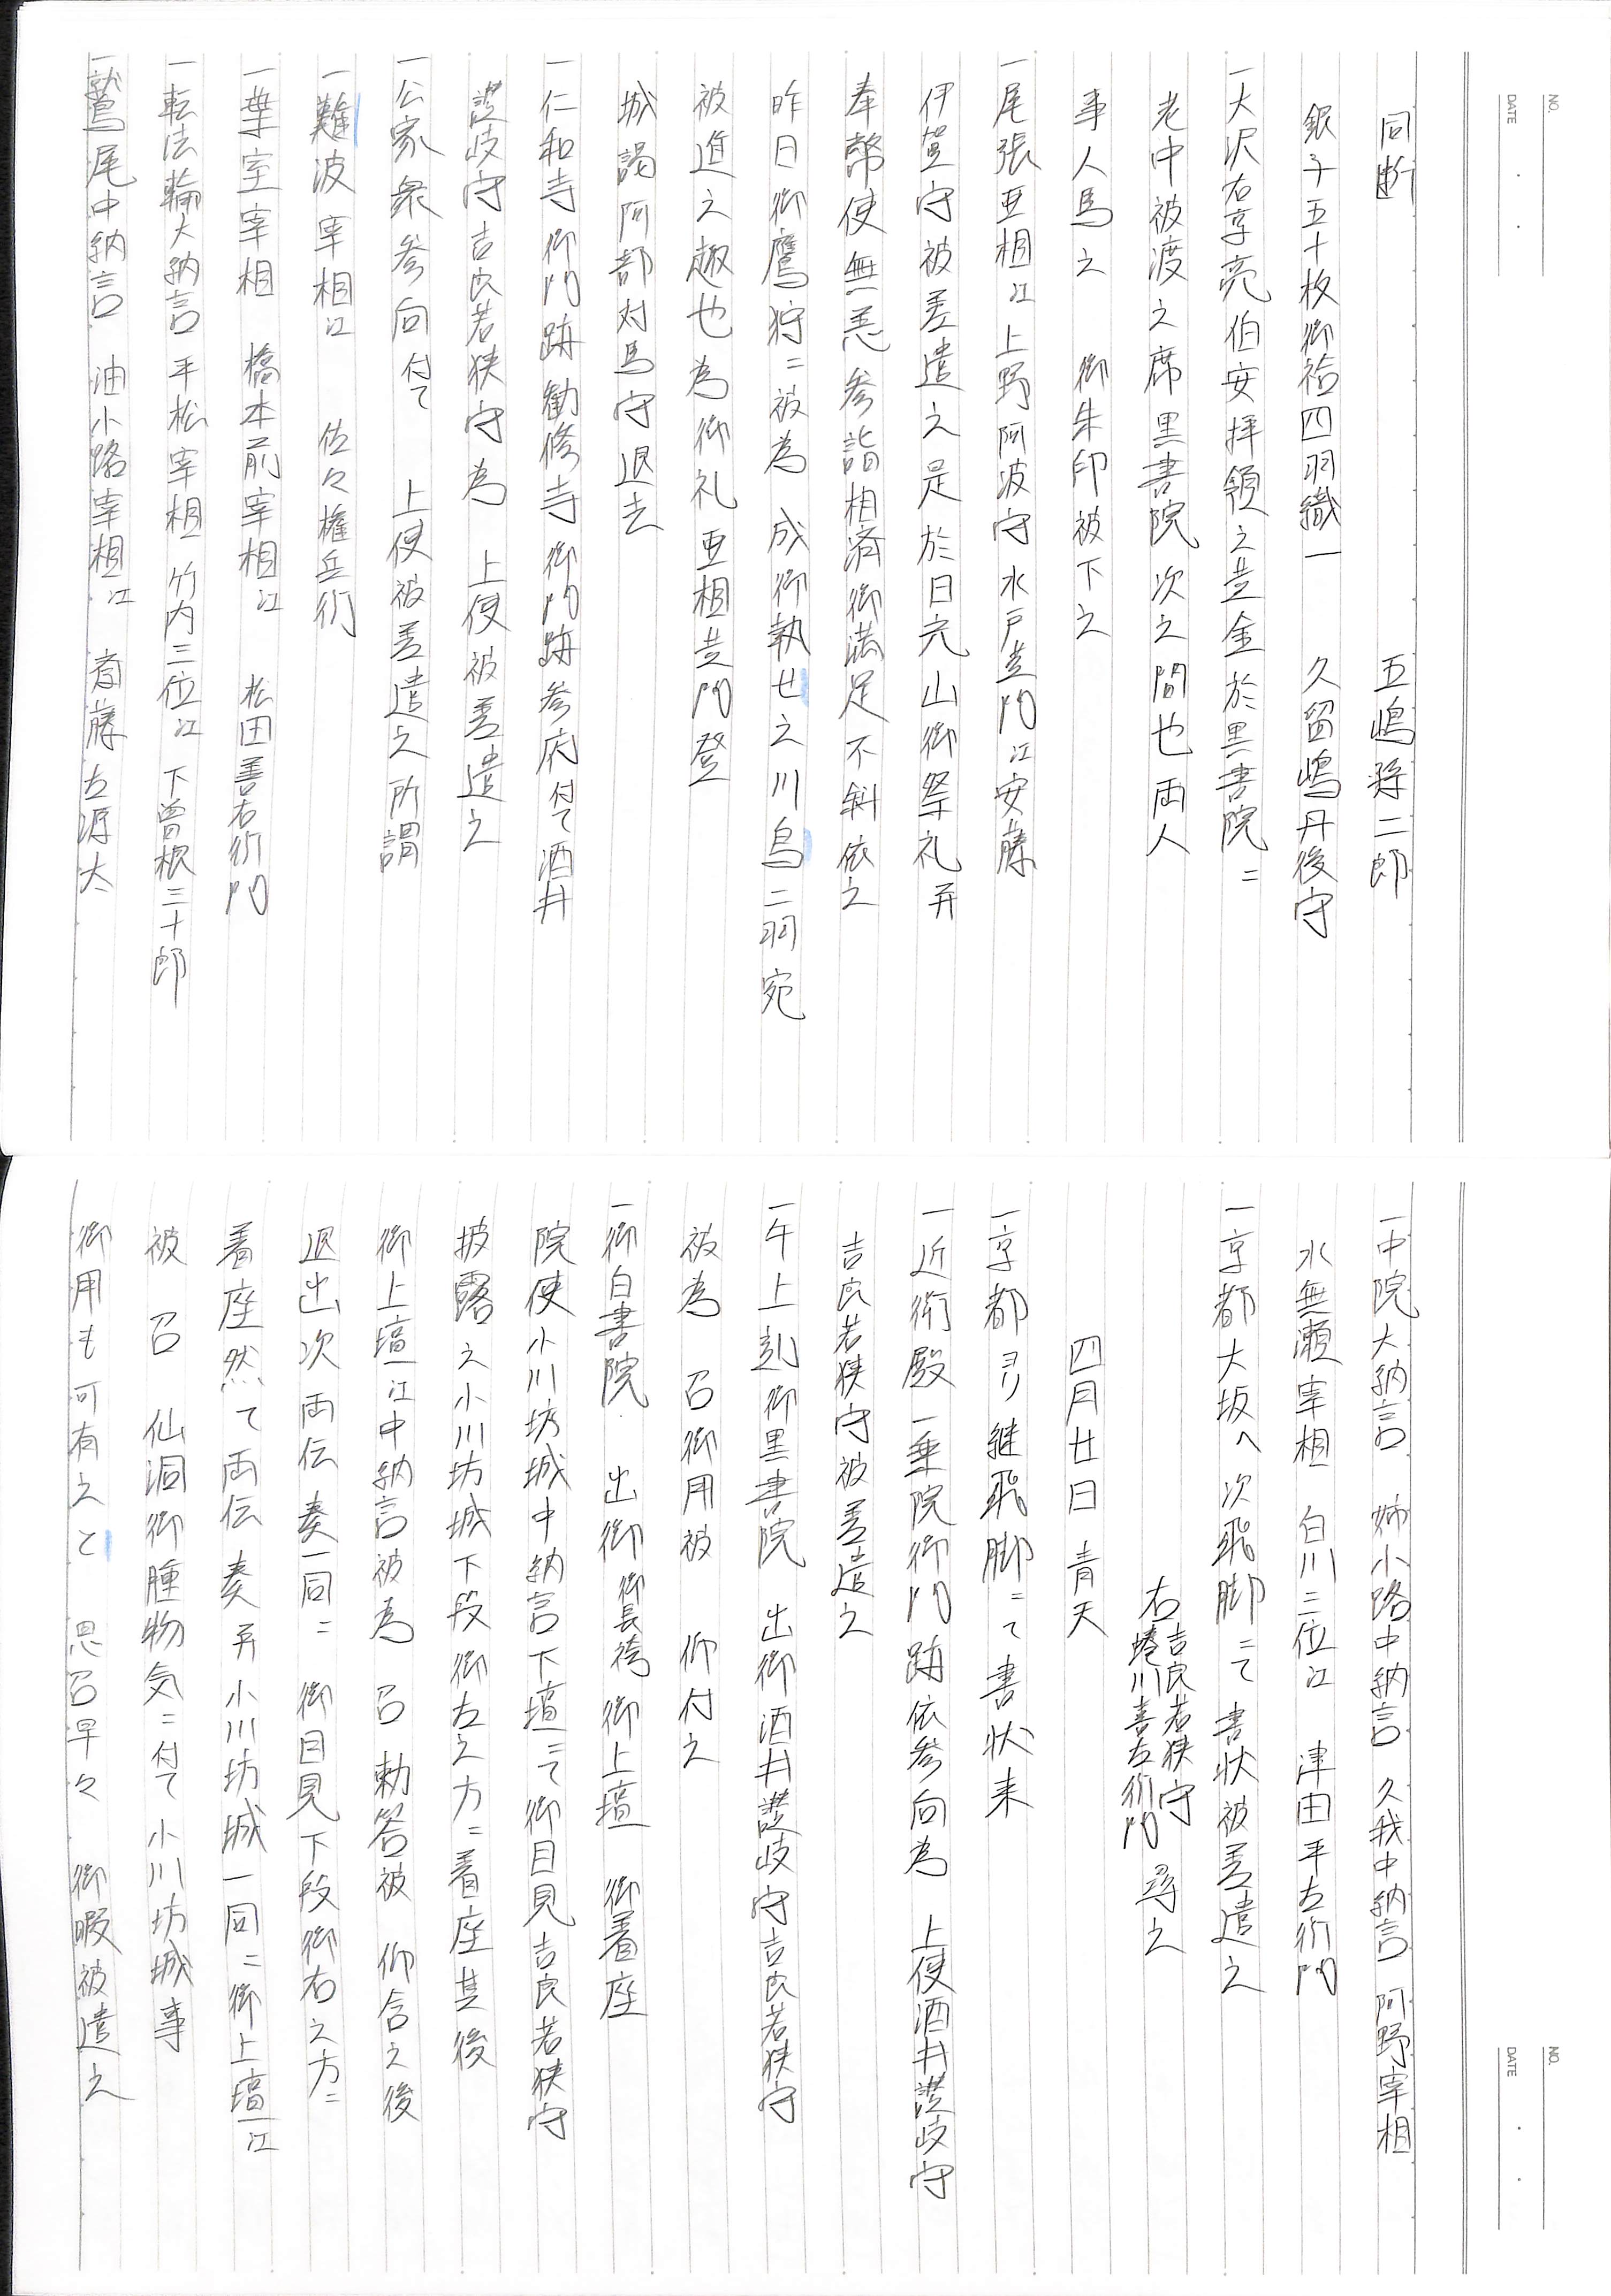 NO.
DATE
同断　五嶋孫二郎
銀子五十枚御袷四羽織一　久留嶋丹後守
一大沢右京亮伯安拝領之並金於黒書院ニ
老中被渡之席黒書院次之間也両人
事人馬之　御朱印被下之
一尾張亜相江上野阿波守水戸黄門江安藤
伊賀守被差遣之是於日光山御祭礼并
奉幣使無恙参詣相済御満足不斜依之
昨日御鷹狩ニ被為　成御執廿之川烏二羽宛
被進之趣也為御礼亜相黄門登
城謁阿部対馬守退去
一仁和寺御門跡勧修寺御門跡参府付て酒井
讃岐守吉良若狭守為　上使被差遣之
一公家衆参向付て　上使被差遣之所謂
一難波宰相江　佐々権兵衛
一葉室宰相　橋本前宰相江　松田善右衛門
一転法輪大納言　平松宰相　竹内三位江　下曽根三十郎
一鷲尾中納言　油小路宰相江　斎藤左源太
NO.
DATE
一中院大納言　姉小路中納言　久我中納言　阿野宰相
水無瀬宰相　白川三位江　津田平左衛門
一京都大坂へ次飛脚ニて書状被差遣之
右　吉良若狭守　蜷川喜左衛門　尋之
四月廿日　青天
一京都ヨリ継飛脚ニて書状来
一近衛殿一乗院御門跡依参向為　上使酒井讃岐守
吉良若狭守被差遣之
一午上刻御黒書院　出御酒井讃岐守吉良若狭守
被為　召御用被　仰付之
一御白書院　出御　御長袴　御上壇　御着座
院使小川坊城中納言下壇ニて御目見吉良若狭守
披露之小川坊城下段御左之方ニ着座其後
御上壇江中納言被為　召　勅答被　仰含之後
退出次両伝奏一同ニ　御目見下段御右之方ニ
着座然て両伝奏并小川坊城一同ニ御上壇江
被　召　仙洞御腫物気ニ付て小川坊城事
御用も可有之と　思召早々　御暇被遣之